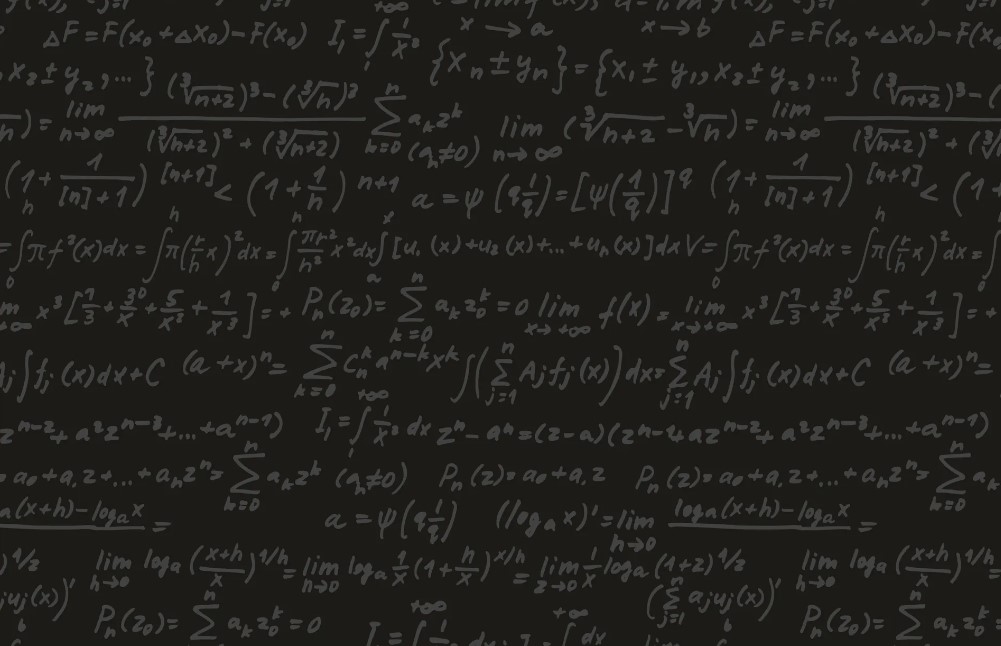 ΔF=F(x₀+Δx₀)-F(x₀) I₁=∫ 1/x² x→a x→b ΔF=F(x₀+Δx₀)-F(x
x₂±y₂,...} {xₙ±yₙ}={x₁±y₁,x₂±y₂,...}
)= lim n→∞ ((∛n+2)³-(∛n)³)/((∛n+2)²+(∛n+2) ∑ n k=0 aₖzᵏ (aₙ≠0) lim n→∞ (∛n+2-∛n)= lim n→∞
(1+1/([n]+1)) [n+1] < (1+1/n) n+1 a=ψ(q 1/q)=[ψ(1/q)]^q (1+1/([n]+1)) [n+1] < (1+
=∫ h 0 πf²(x)dx=∫ h π(r/h x)²dx=∫ n 0 πr²/h² x²dx ∫ x a [u₁(x)+u₂(x)+...+uₙ(x)]dx V=∫ h 0 πf²(x)dx=∫ h π(r/h x)²dx=
x³[7/3+30/x+5/x²+1/x³]=+ Pₙ(z₀)= ∑ n k=0 aₖz₀ᵏ=0 lim x→+∞ f(x)= lim x→+∞ x³[7/3+30/x+5/x²+1/x³]=+
Aj∫fj(x)dx+C (a+x)ⁿ= ∑ n k=0 Cₙᵏaⁿ⁻ᵏxᵏ ∫(∑ n j=1 Ajfj(x))dx= ∑ n j=1 Aj∫fj(x)dx+C (a+x)ⁿ=
zⁿ⁻²+a²zⁿ⁻³+...+aⁿ⁻¹) I₁=∫ +∞ 1 1/x² dx zⁿ-aⁿ=(z-a)(zⁿ⁻¹+azⁿ⁻²+a²zⁿ⁻³+...+aⁿ⁻¹)
=a₀+a₁z+...+aₙzⁿ= ∑ n k=0 aₖzᵏ (aₙ≠0) Pₙ(z)=a₀+a₁z Pₙ(z)=a₀+a₁z+...+aₙzⁿ= ∑ n k=0 aₖ
a(x+h)-logₐx = a=ψ(q 1/q) (logₐx)'= lim h→0 logₐ(x+h)-logₐx =
)^1/z lim h→0 logₐ((x+h)/x)^1/h= lim h→0 logₐ 1/x (1+h/x)^x/h= lim z→0 1/x logₐ(1+z)^1/z lim h→0 logₐ((x+h)/x)^1/h=
juj(x))' (∑ n j=1 ajuj(x))'
Pₙ(z₀)= ∑ n k=0 aₖz₀ᵏ=0 +∞ +∞ Pₙ(z₀)= ∑ n aₖz₀ᵏ=0